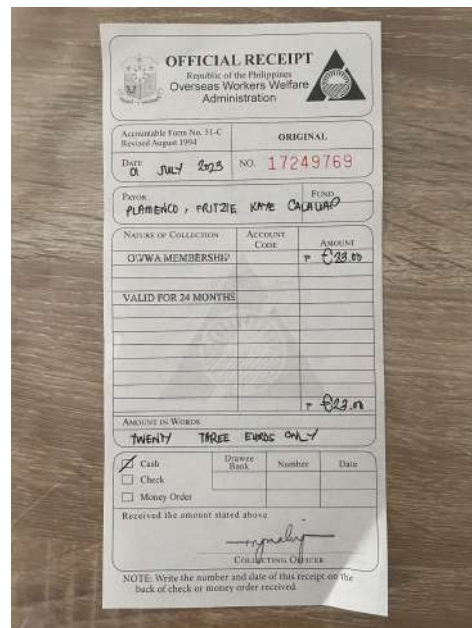 OFFICIAL RECEIPT
Republic of the Philippines
Overseas Workers Welfare
Administration
Accountable Form No. 51-C
Revised August 1994
ORIGINAL
DATE
01 JULY 2023
NO. 17249769
PAYOR
FUND
PLAMENCO, FRITZIE KAYE CALAUAD
NATURE OF COLLECTION
ACCOUNT CODE
AMOUNT
OWWA MEMBERSHIP
P €23.00
VALID FOR 24 MONTHS
P €23.00
AMOUNT IN WORDS
TWENTY THREE EUROS ONLY
Cash
Drawee Bank
Number
Date
Check
Money Order
Received the amount stated above
COLLECTING OFFICER
NOTE: Write the number and date of this receipt on the
back of check or money order received.